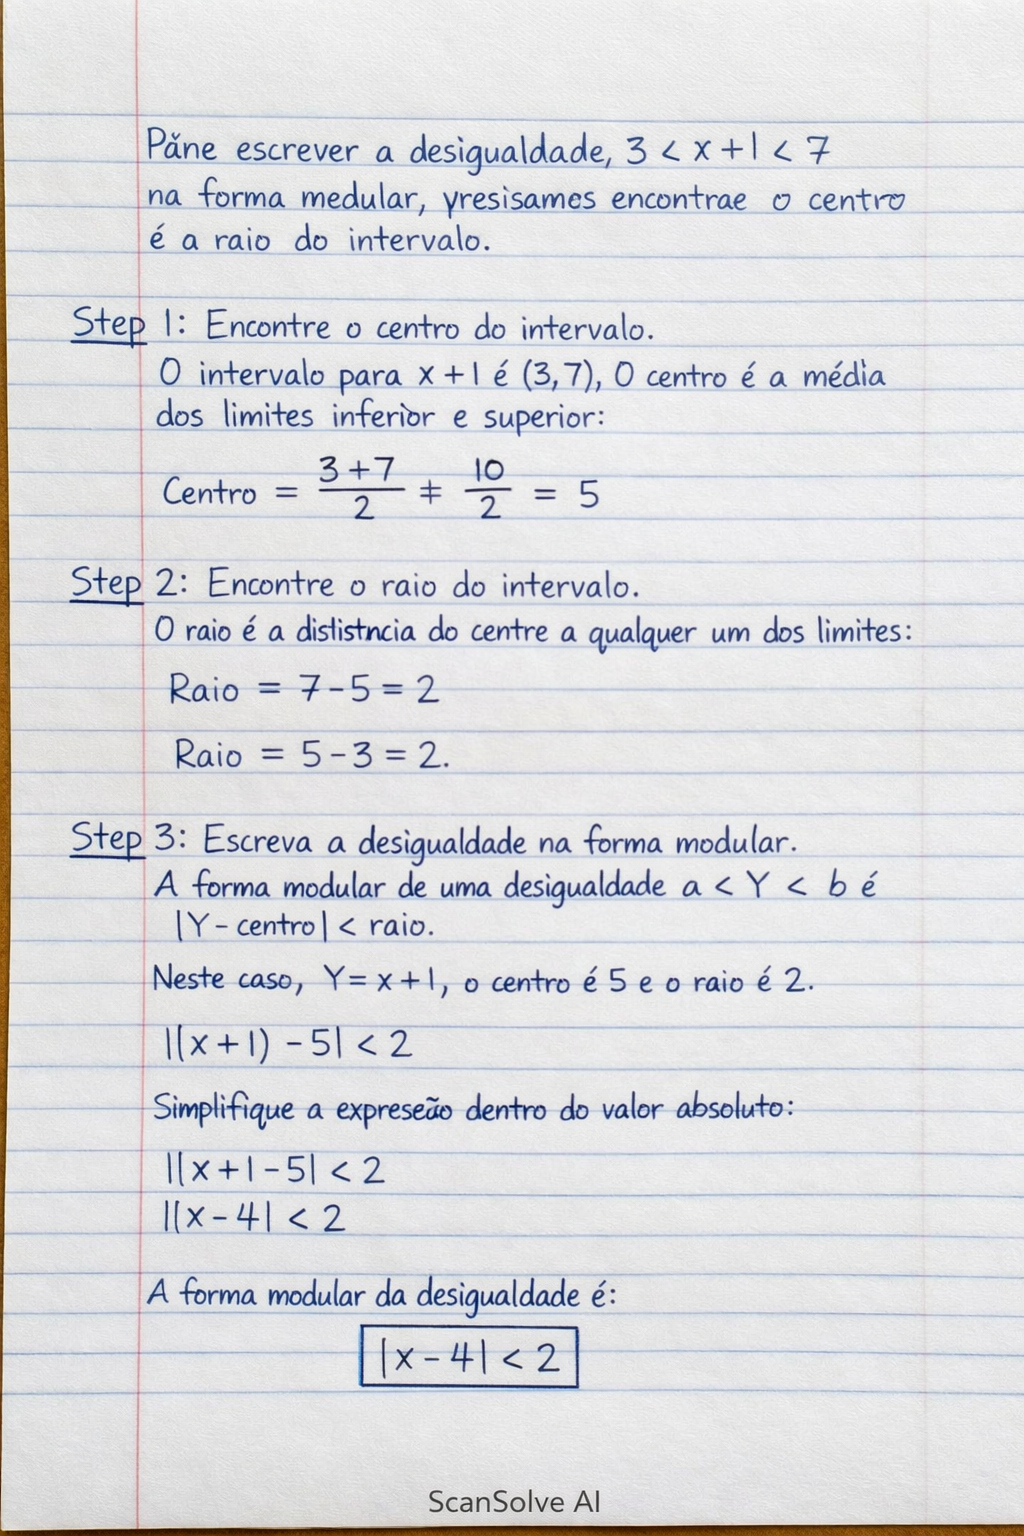 Päne escrever a desigualdade, 3 < x + 1 < 7
na forma medular, yresisames encontrae o centro
é a raio do intervalo.
Step 1: Encontre o centro do intervalo.
O intervalo para x + 1 é (3,7), O centro é a média
dos limites inferior e superior:
Centro = 3+7/2 ≠ 10/2 = 5
Step 2: Encontre o raio do intervalo.
O raio é a dististncia do centre a qualquer um dos limites:
Raio = 7 - 5 = 2
Raio = 5 - 3 = 2.
Step 3: Escreva a desigualdade na forma modular.
A forma modular de uma desigualdade a < Y < b é
|Y - centro| < raio.
Neste caso, Y = x + 1, o centro é 5 e o raio é 2.
|(x + 1) - 5| < 2
Simplifique a expreseão dentro do valor absoluto:
|(x + 1 - 5| < 2
|(x - 4| < 2
A forma modular da desigualdade é:
|x - 4| < 2
ScanSolve AI